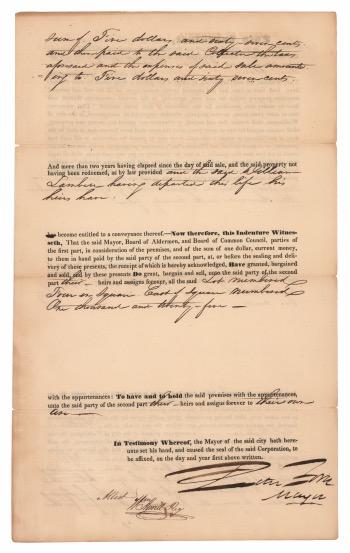 sum of Five dollars and sixty seven cents
and then paid to the said Collector the taxes
aforesaid and the expenses of said sale amount-
ing to Five dollars and sixty seven cents.
And more than two years having elapsed since the day of said sale, and the said property not
having been redeemed, as by law provided and the said William
Lambert having departed this life his
heirs have
become entitled to a conveyance thereof.—Now therefore, this Indenture Witnes-
seth, That the said Mayor, Board of Aldermen, and Board of Common Council, parties of
the first part, in consideration of the premises, and of the sum of one dollar, current money,
to them in hand paid by the said party of the second part, at, or before the sealing and deli-
very of these presents, the receipt of which is hereby acknowledged, Have granted, bargained
and sold, and by these presents Do grant, bargain and sell, unto the said party of the second
part their heirs and assigns forever, all the said Lot numbered
Four in Square East of Square numbered
One thousand and twenty-five —
with the appurtenances: To have and to hold the said premises with the appurtenances,
unto the said party of the second part their heirs and assigns forever to their own
use —
In Testimony Whereof, the Mayor of the said city hath here-
unto set his hand, and caused the seal of the said Corporation, to
be affixed, on the day and year first above written.
Peter Force
Attest
Mayor
Reg